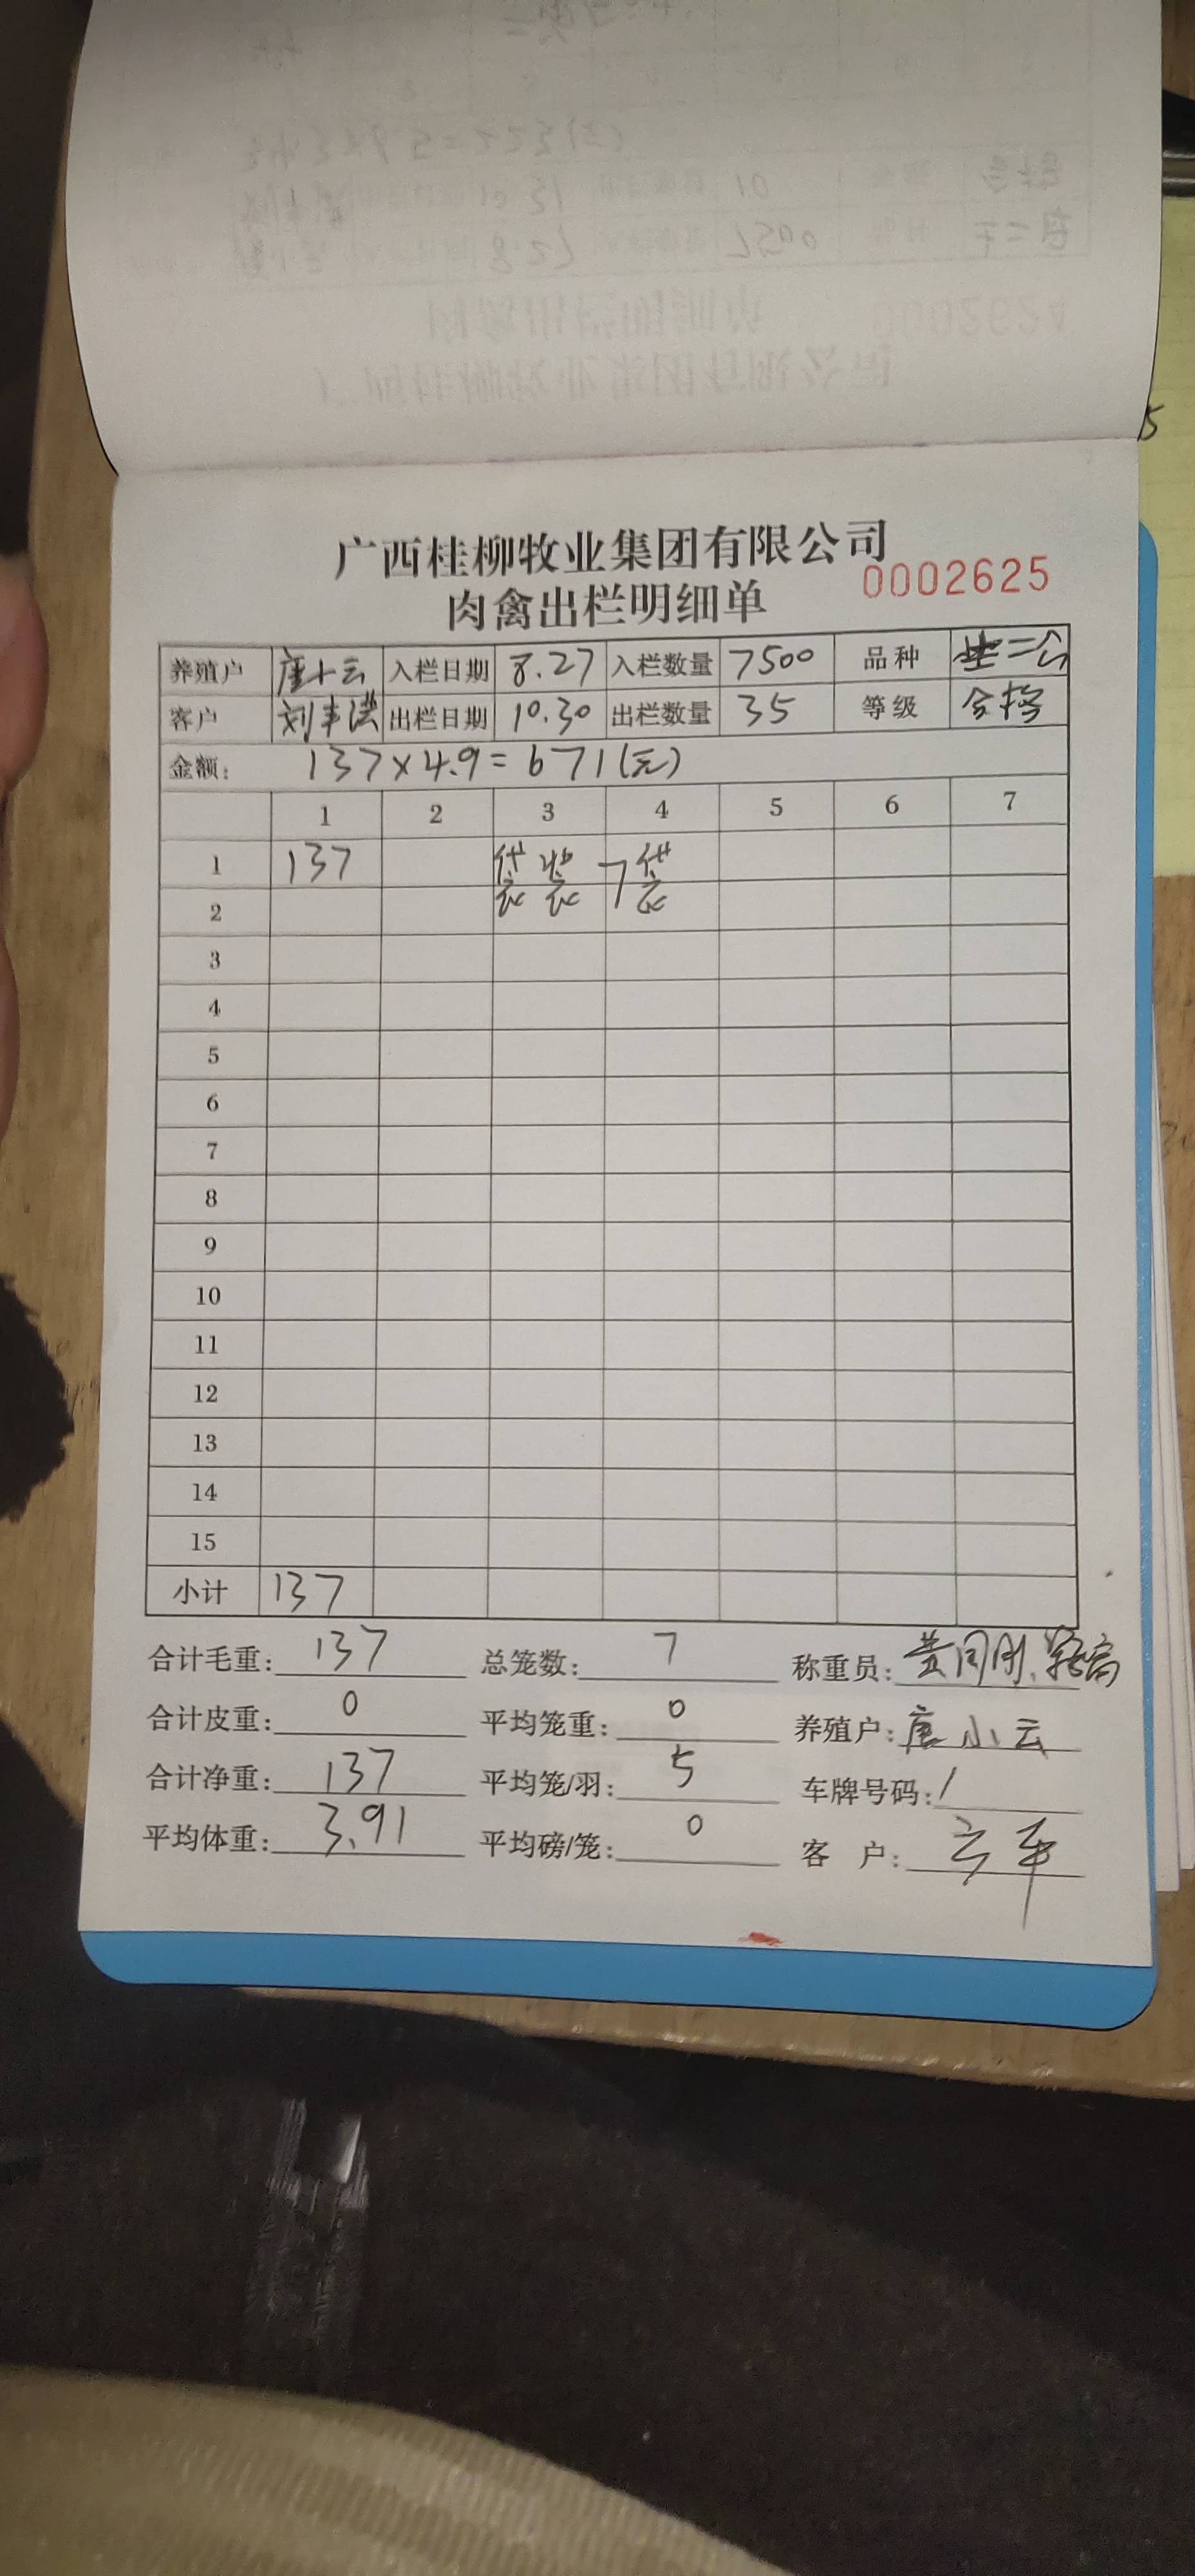 广西桂柳牧业集团有限公司
肉禽出栏明细单 0002625
养殖户 唐小云 入栏日期 8.27 入栏数量 7500 品种 二公
客户 刘丰洪 出栏日期 10.30 出栏数量 35 等级 合格
金额: 137×4.9=671(元)
1 2 3 4 5 6 7
1 137 袋装7袋
2
3
4
5
6
7
8
9
10
11
12
13
14
15
小计 137
合计毛重: 137 总笼数: 7 称重员: 黄同刚
合计皮重: 0 平均笼重: 0 养殖户: 唐小云
合计净重: 137 平均笼/羽: 5 车牌号码: /
平均体重: 3.91 平均磅/笼: 0 客 户: